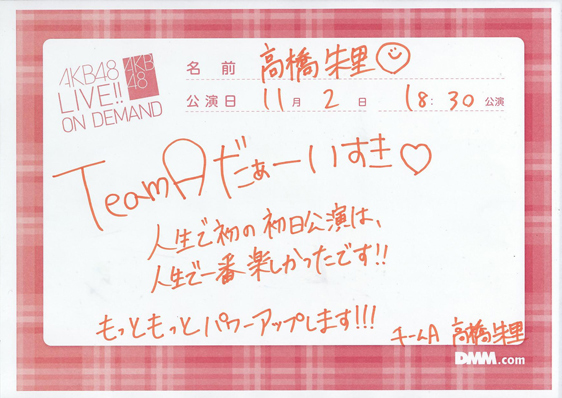 AKB48
LIVE!!
ON DEMAND
AKB
48
名前 高橋朱里
公演日 11月2日 18:30公演
TeamAだぁーいすき♡
人生で初の初日公演は、
人生で一番楽しかったです!!
もっともっとパワーアップします!!!
チームA 高橋朱里
DMM.com